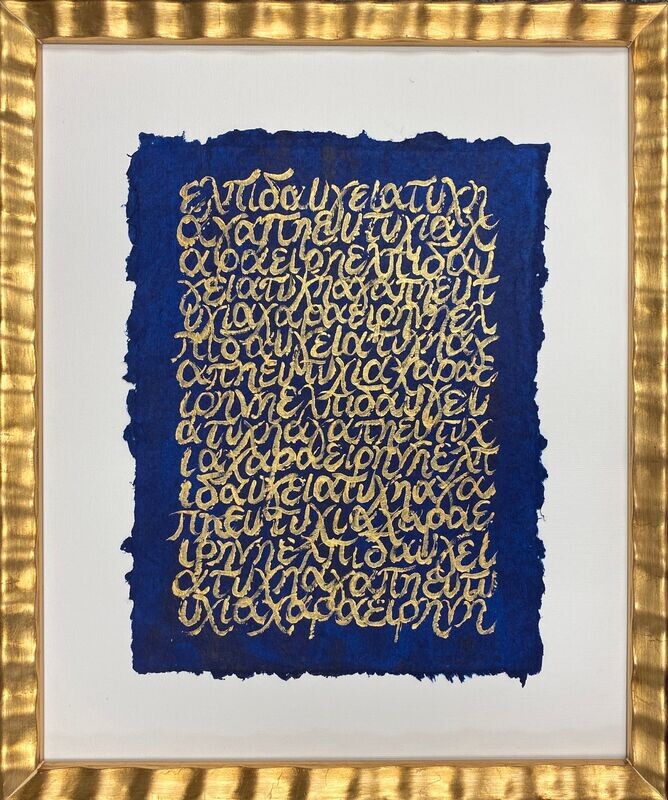 ελπιδαυγειατυχη
αγαπηευτυχιαχ
αραειρηελπιδαυ
γειατυχηαγαπηευτ
υχιαχαραειρηνηελ
πιδαυγειατυχηαγ
απηευτυχιαχαραε
ιρηνηελπιδαυγει
ατυχηαγαπηευτυχ
ιαχαραειρηνηελπ
ιδαυγειατυχηαγα
πηευτυχιαχαραε
ιρηνηελπιδαυγει
ατυχηαγαπηευτ
υχιαχαραειρηνη